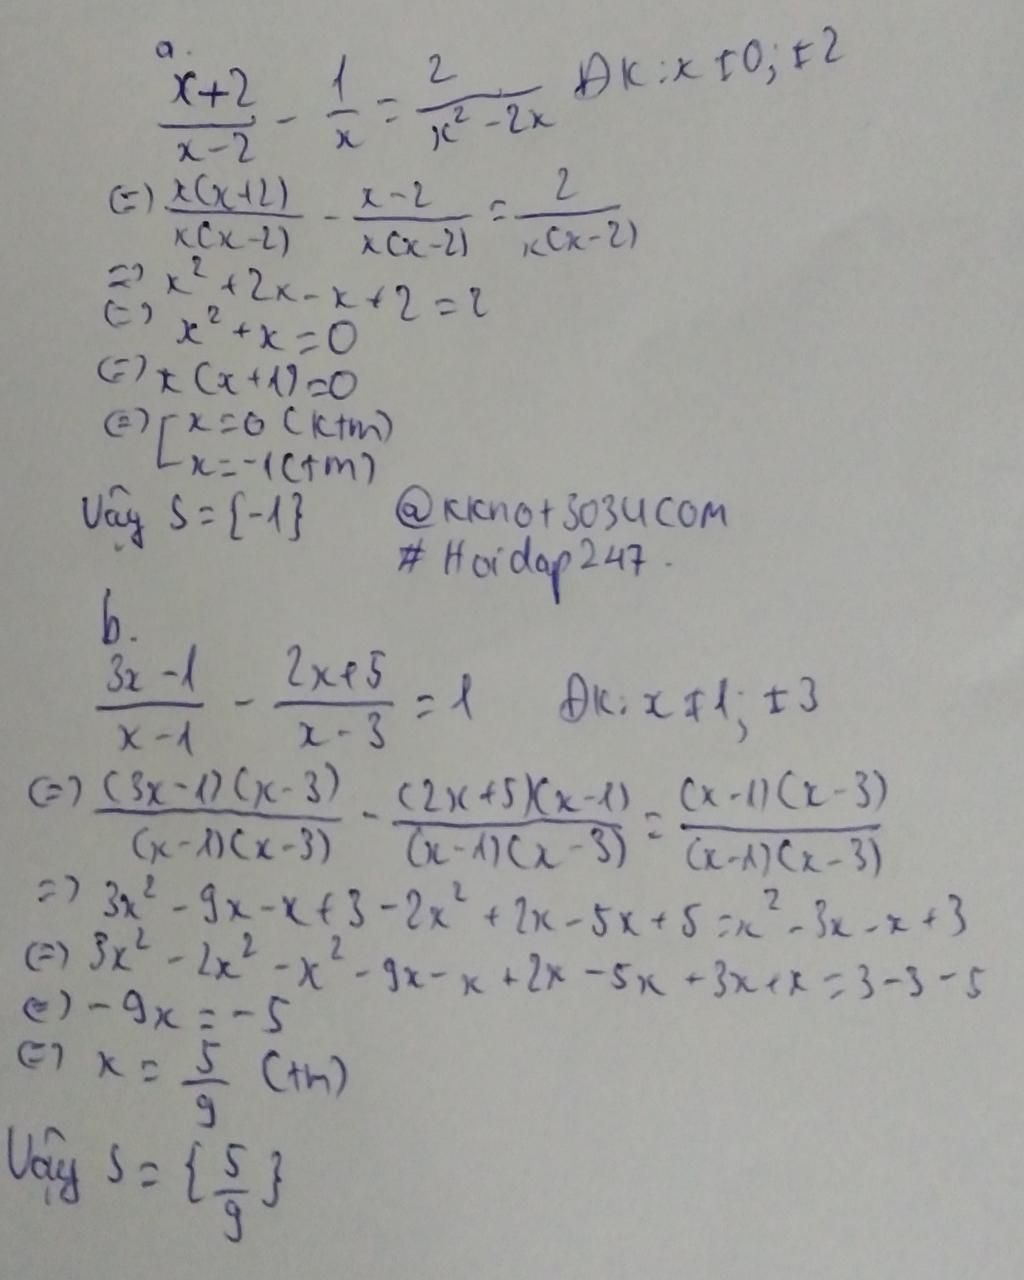 a.
x+2/x-2 - 1/x = 2/x²-2x ĐK: x ≠ 0; ≠ 2
(=) x(x+2)/x(x-2) - x-2/x(x-2) = 2/x(x-2)
=> x² + 2x - x + 2 = 2
(=) x² + x = 0
(=) x(x+1) = 0
(=) [ x = 0 (ktm)
x = -1 (tm)
Vậy S = {-1} @kkno+3034COM
# Hoidap247.
b.
3x-1/x-1 - 2x+5/x-3 = 1 ĐK: x ≠ 1; ≠ 3
(=) (3x-1)(x-3)/(x-1)(x-3) - (2x+5)(x-1)/(x-1)(x-3) = (x-1)(x-3)/(x-1)(x-3)
=> 3x² - 9x - x + 3 - 2x² + 2x - 5x + 5 = x² - 3x - x + 3
(=) 3x² - 2x² - x² - 9x - x + 2x - 5x + 3x + x = 3 - 3 - 5
(=) -9x = -5
(=) x = 5/9 (tm)
Vậy S = {5/9}